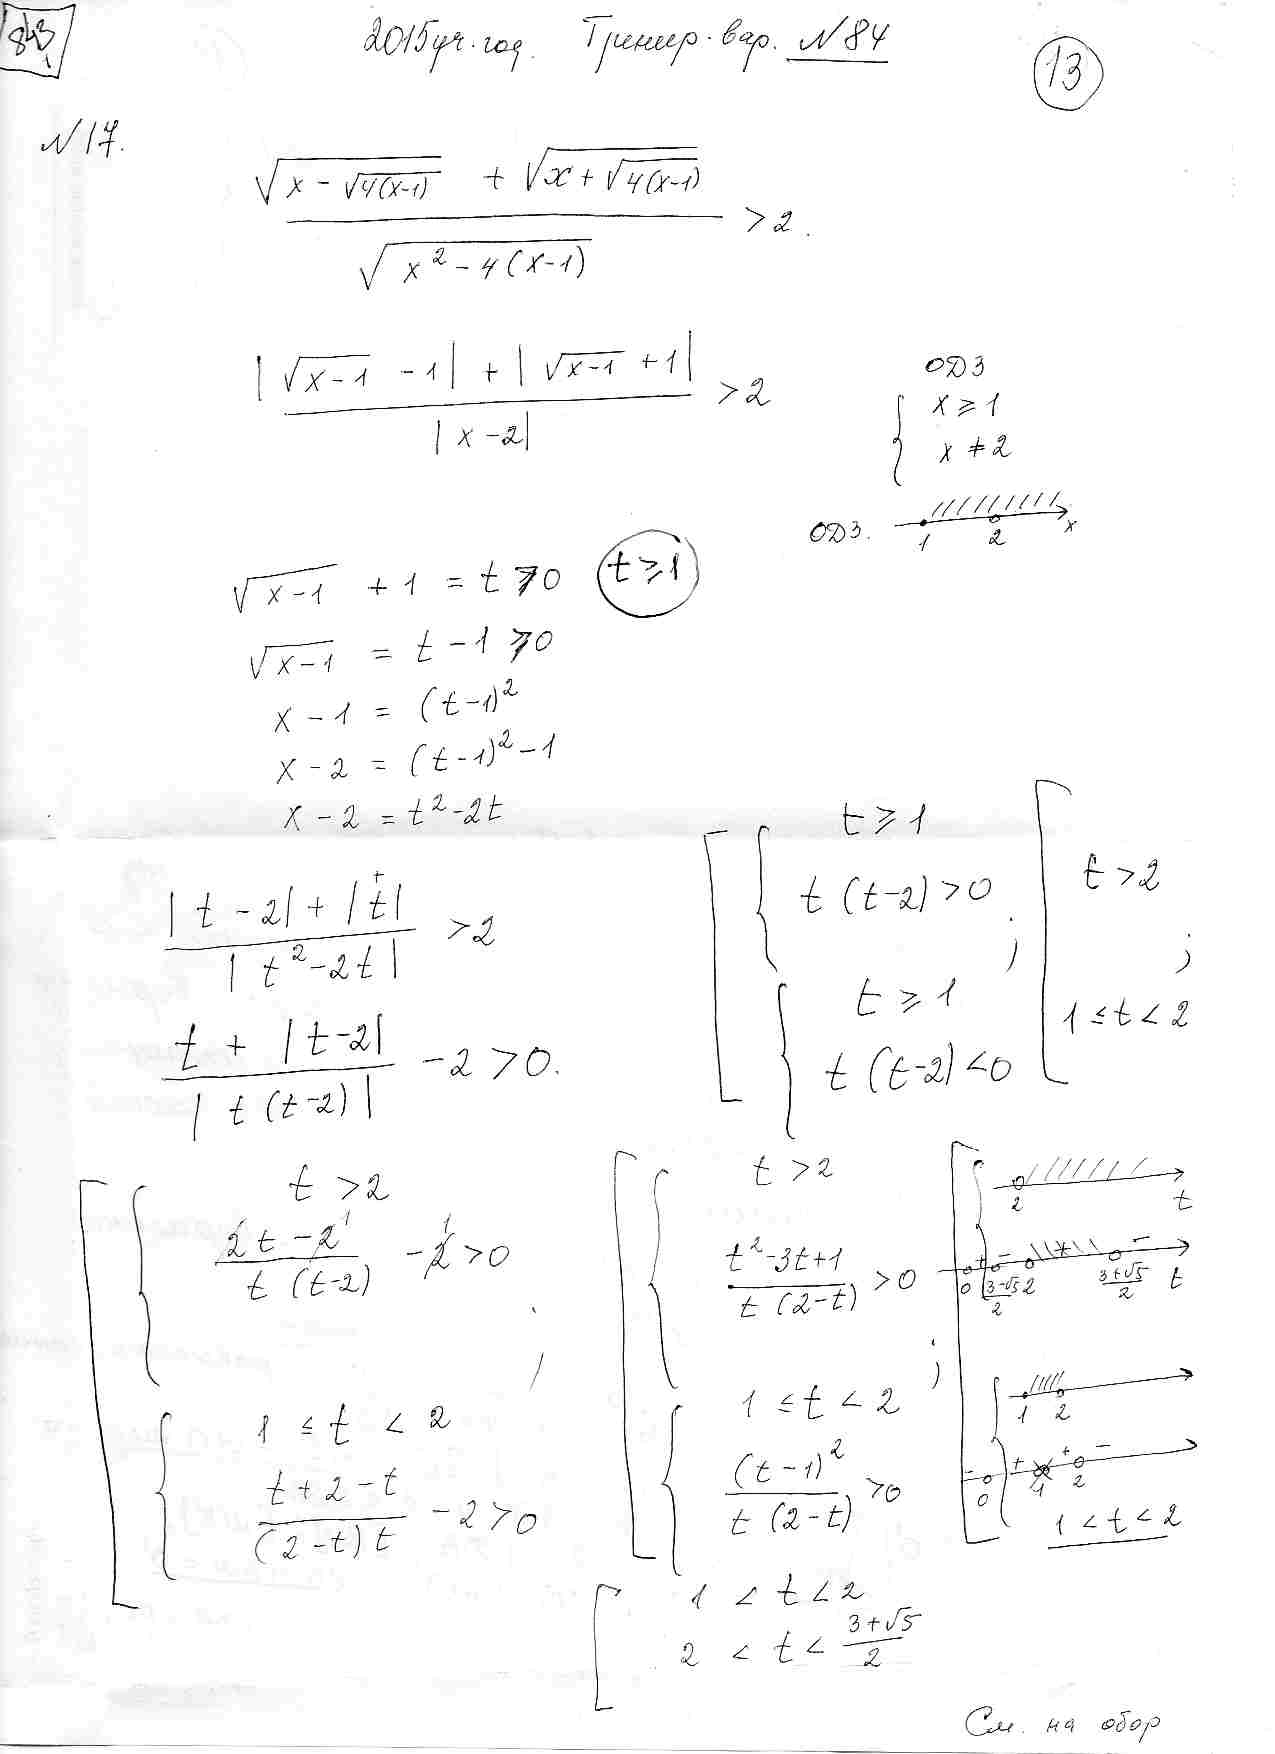 843
1
2015 уч. год. Тренир. вар. N 84
13
N 17.
√(x - √(4(x-1))) + √(x + √(4(x-1)))
√(x² - 4(x-1))
> 2.
|√(x-1) - 1| + |√(x-1) + 1|
|x - 2|
> 2
ОДЗ
{ x ⩾ 1
x ≠ 2
ОДЗ. 1 2 x
√(x-1) + 1 = t ⩾ 0 t ⩾ 1
√(x-1) = t - 1 ⩾ 0
x - 1 = (t-1)²
x - 2 = (t-1)² - 1
x - 2 = t² - 2t
|t - 2| + |t| +
|t² - 2t|
> 2
t + |t-2|
|t(t-2)|
- 2 > 0.
[ { t ⩾ 1
t(t-2) > 0
;
{ t ⩾ 1
t(t-2) < 0
[ t > 2
;
1 ≤ t < 2
[ { t > 2
2t - 2 1
t(t-2)
- 2 1 > 0
;
{ 1 ≤ t < 2
t + 2 - t
(2-t)t
- 2 > 0
[ { t > 2
t² - 3t + 1
t(2-t)
> 0
;
{ 1 ≤ t < 2
(t-1)²
t(2-t)
> 0
[ { 2 t
- + - + -
0 (3-√5)/2 2 (3+√5)/2 t
{ 1 2
- + + -
0 1 2
1 < t < 2
[ 1 < t < 2
2 < t < (3+√5)/2
См. на обор